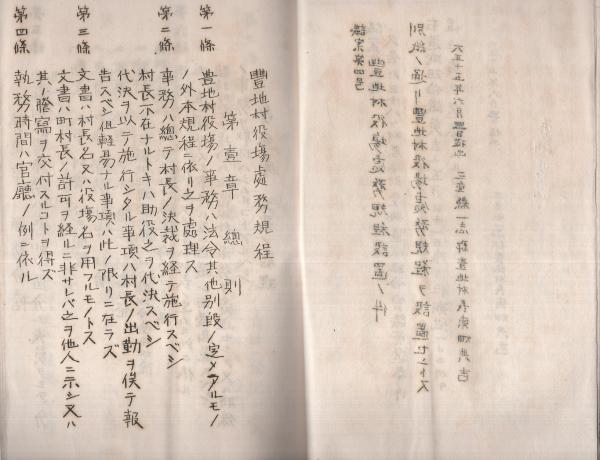 議案第四号
豊地村役場処務規程設置ノ件
別紙ノ通リ豊地村役場処務規程ヲ設置セントス
大正十五年六月 日提出 三重縣一志郡豊地村長
豐地村役場處務規程
第壹章 總則
第一條 豐地村役場ノ事務ハ法令其他別段ノ定メアルモノ
ノ外本規程ニ依リ之ヲ處理ス
第二條 事務ハ總テ村長ノ決裁ヲ経テ施行スベシ
村長不在ナルトキハ助役之ヲ代決スベシ
代決ヲ以テ施行シタル事項ハ村長ノ出勤ヲ俟テ報
告スベシ但軽易ナル事項ハ此ノ限リニ在ラズ
第三條 文書ハ村長名又ハ役場名ヲ用フルモノトス
文書ハ町村長ノ許可ヲ経ルニ非サレバ之ヲ他人ニ示シ又ハ
其ノ謄寫ヲ交付スルコトヲ得ズ
第四條 執務時間ハ官廳ノ例ニ依ル